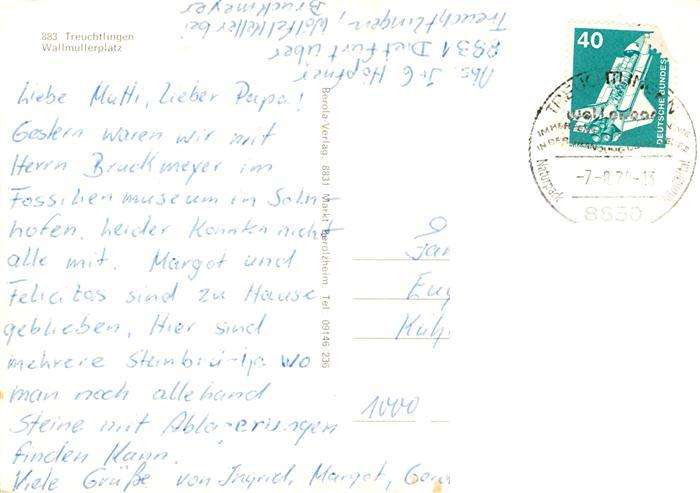 883 Treuchtlingen
Wallmüllerplatz
Abs. I+G Höpfner
8831 Dietfurt über
Treuchtlingen, Wölfelkeller bei
Bruckmeyer
Liebe Mutti, lieber Papa!
Gestern waren wir mit
Herrn Bruckmeyer im
Fossilienmuseum in Soln-
hofen. Leider konnten nicht
alle mit. Margot und
Felicitas sind zu Hause
geblieben. Hier sind
mehrere Steinbrü wo
man noch allehand
Steine mit Ablagerungen
finden kann.
Viele Grüße von Ingrid, Margot,
Berola-Verlag 8831 Markt Berolzheim Tel 09146 236
40
DEUTSCHE BUNDES
Naturpark
-13
8830
Fam
Eug
Küh
1000